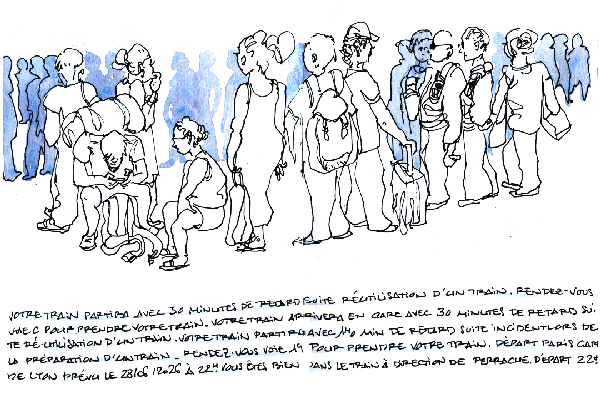 VOTRE TRAIN PARTIRA AVEC 30 MINUTES DE RETARD SUITE RÉUTILISATION D'UN TRAIN. RENDEZ-VOUS
VOIE C POUR PRENDRE VOTRE TRAIN. VOTRE TRAIN ARRIVERA EN GARE AVEC 30 MINUTES DE RETARD SUI
TE RÉUTILISATION D'UN TRAIN. VOTRE TRAIN PARTIRA AVEC 140 MIN DE RETARD SUITE INCIDENT LORS DE
LA PRÉPARATION D'UN TRAIN - RENDEZ-VOUS VOIE 19 POUR PRENDRE VOTRE TRAIN. DÉPART PARIS GARE
DE LYON PRÉVU LE 28/06 À 22H VOUS ÊTES BIEN DANS LE TRAIN À DIRECTION DE PERRACHE. DÉPART 22H